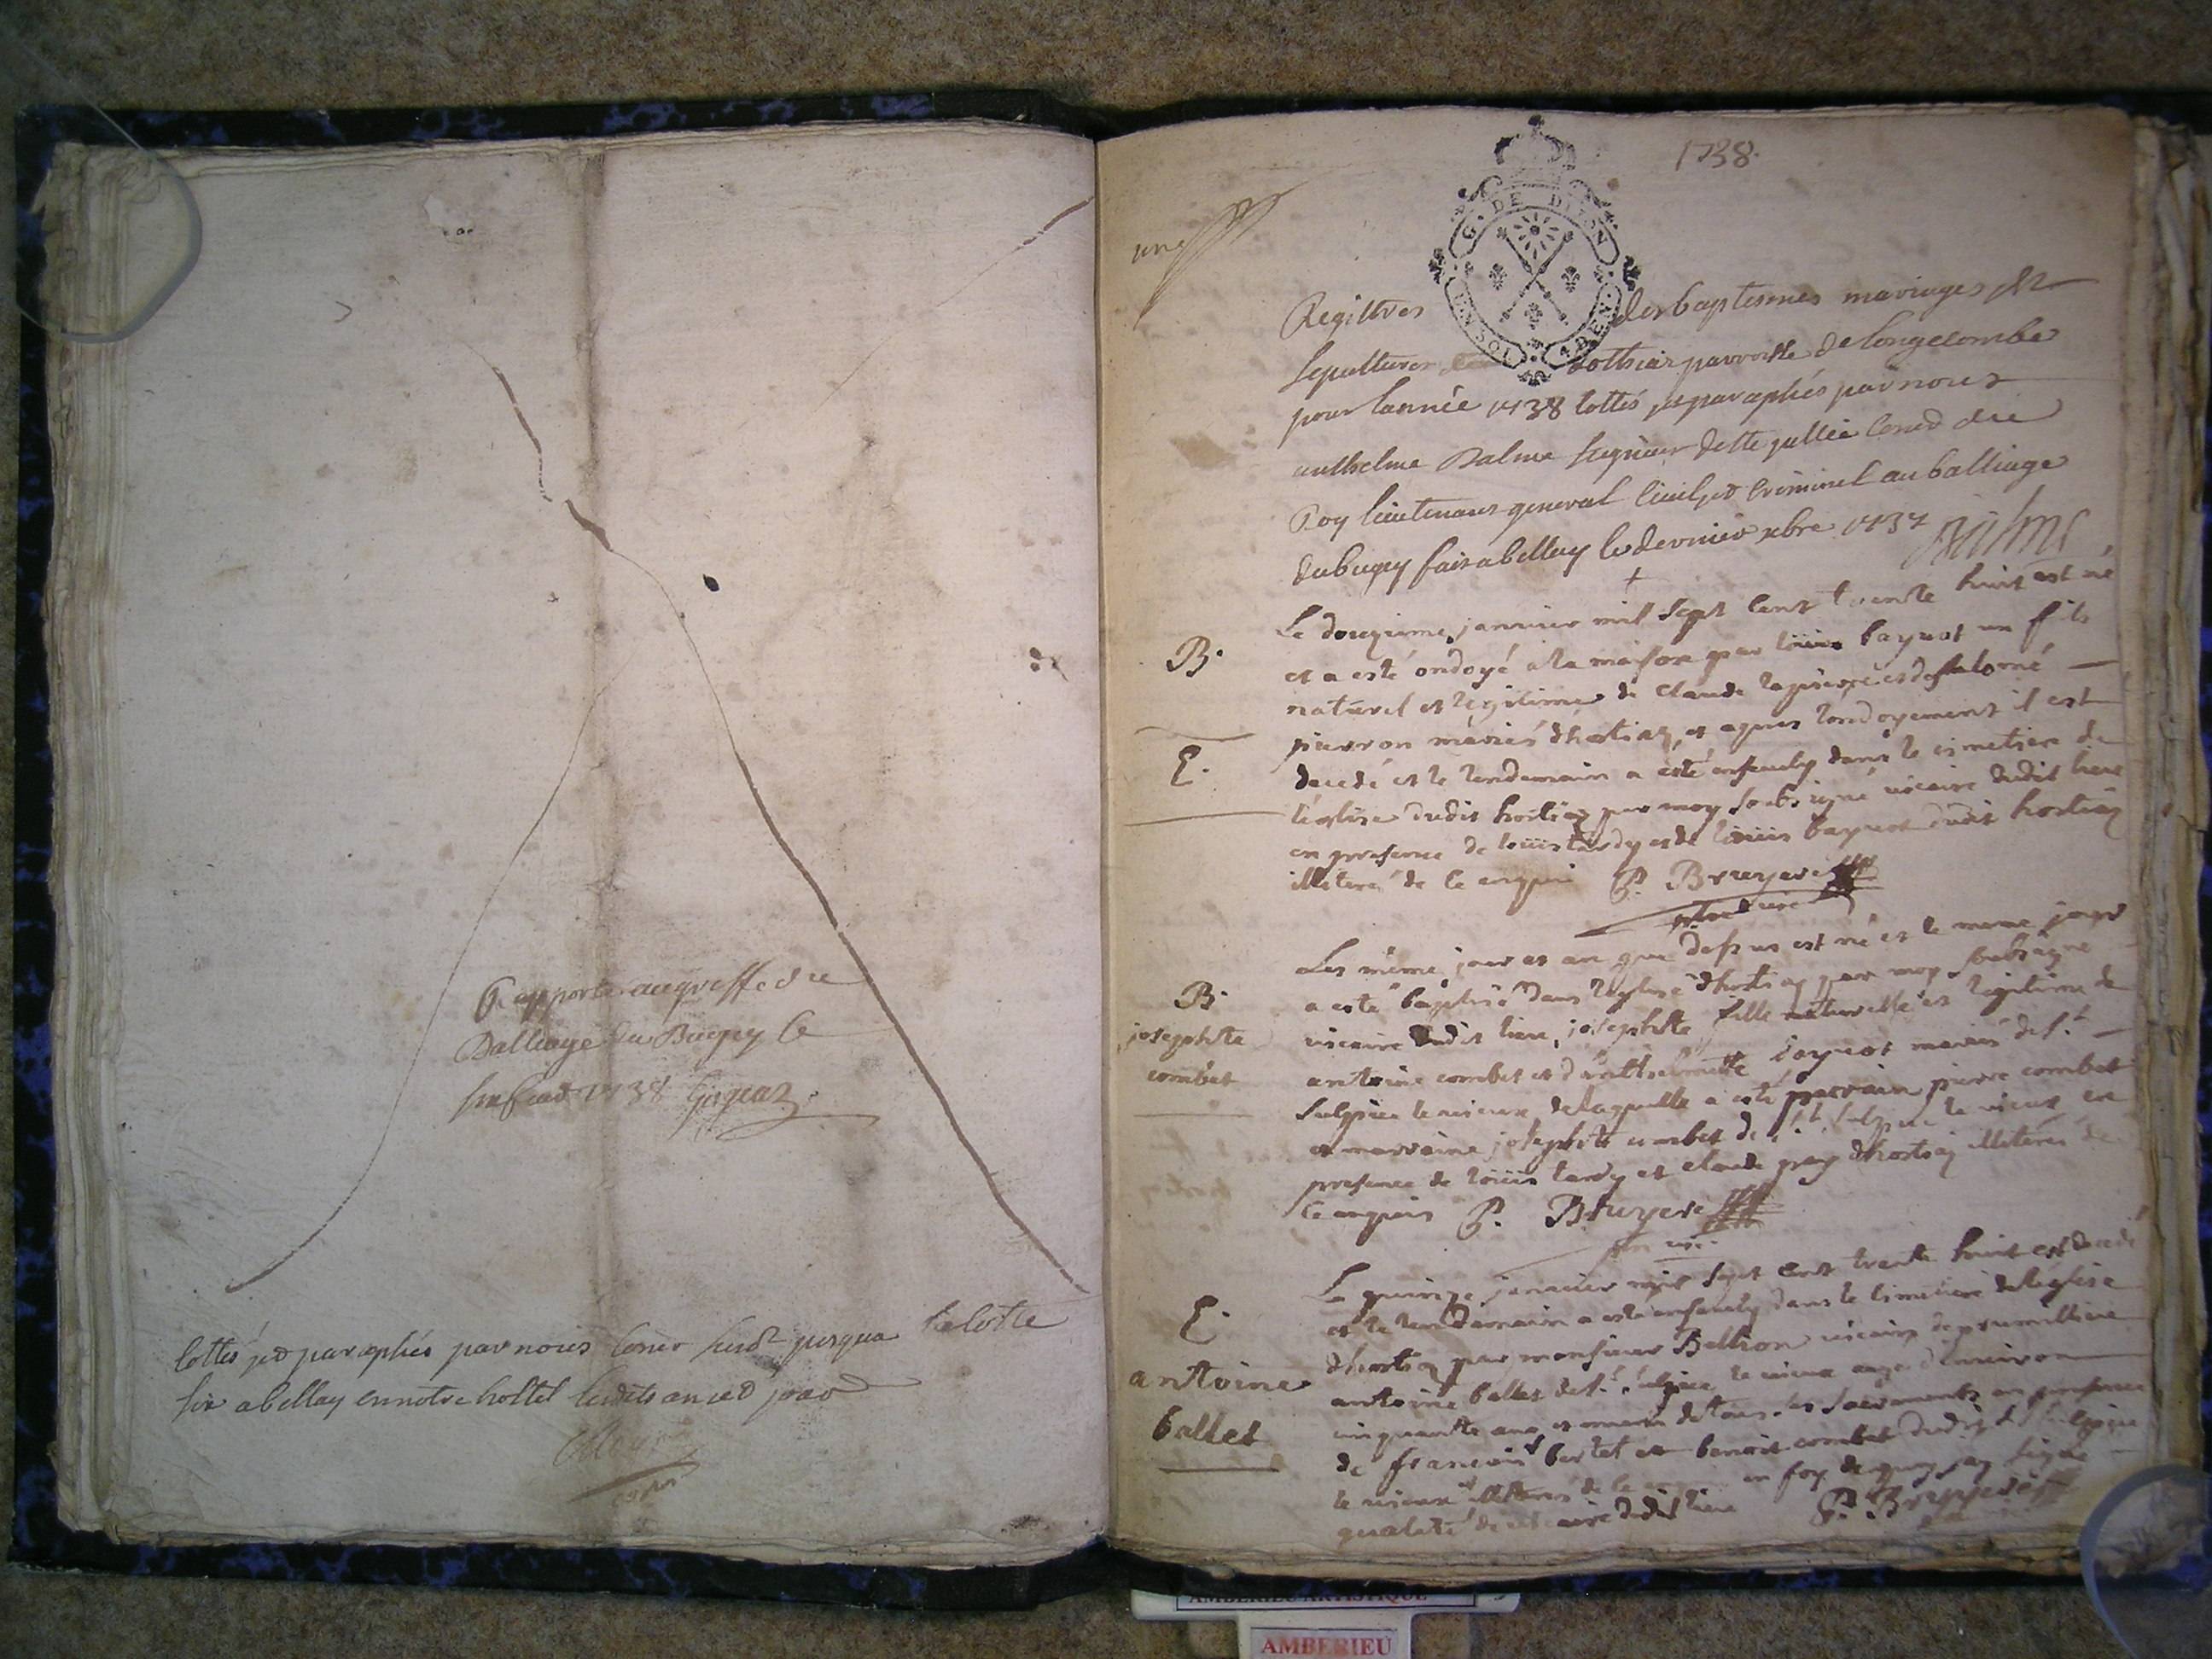 Rapporté au greffe du
Balliage du Bugey le
1738
cottés et par aphés par nous jusqua la cotte
six a bellay en notre hostel lesdits an et jour
1738.
une
G. DE DIJON
UN SOL 4 DEN.
Registres des baptesmes mariages et
sepultures dothiaz parroisse de longecombe
pour lannée 1738 cottés et par aphés par nous
anthelme Balme seigneur de Ste jullie Coner du
Roy lieutenant general Civil et Criminel au balliage
du bugey fait a bellay le dernier xbre 1737 Balme
B.
Le douzieme janvier mil sept cent trente huit est né
et a esté ondoyé a la maison par loüis baynot un fils
naturel et legitime de Claude lapierre et de
pierron mariés dhostiaz, et apres londoyement il est
E.
decedé et le lendemain a esté ensevely dans le cimetiere de
l'eglise dudit hostiaz par moy soubsigné vicaire dudit lieu
en presence de loüis tardy et de loüis baynot dudit hostiaz
illiterés de ce enquis P. Bruyere
ptre vic
Les même jour et an que dessus est né et le meme jour
B.
josephte
combet
a esté baptisé dans leglise dhostiaz par moy soubsigné
vicaire dudit lieu, josephte fille naturelle et legitime de
antoine combet et d'anthelmette baynot mariés de St
Sulpice le vieux de laquelle a esté parrain pierre combet
et marraine josephte combet de St Sulpice le vieux en
presence de loüis tardy et claude dhostiaz illiterés de
ce enquis P. Bruyere
ptre vic.
E.
antoine
ballet
Le quinze janvier mil sept cent trente huit est decedé
et le lendemain a esté ensevely dans le cimetiere de leglise
dhostiaz par monsieur Bellion vicaire de rumillieu
antoine ballet de St Sulpice le vieux agé d'environ
cinquante ans et muni de tous les sacrements en presence
de francois bertet et benoit combet dudit St Sulpice
le vieux illiterés de ce enquis en foy de quoy jay signé
qualité de vicaire dudit lieu P. Bruyere
AMBERIEU ARTISTIQUE
AMBERIEU